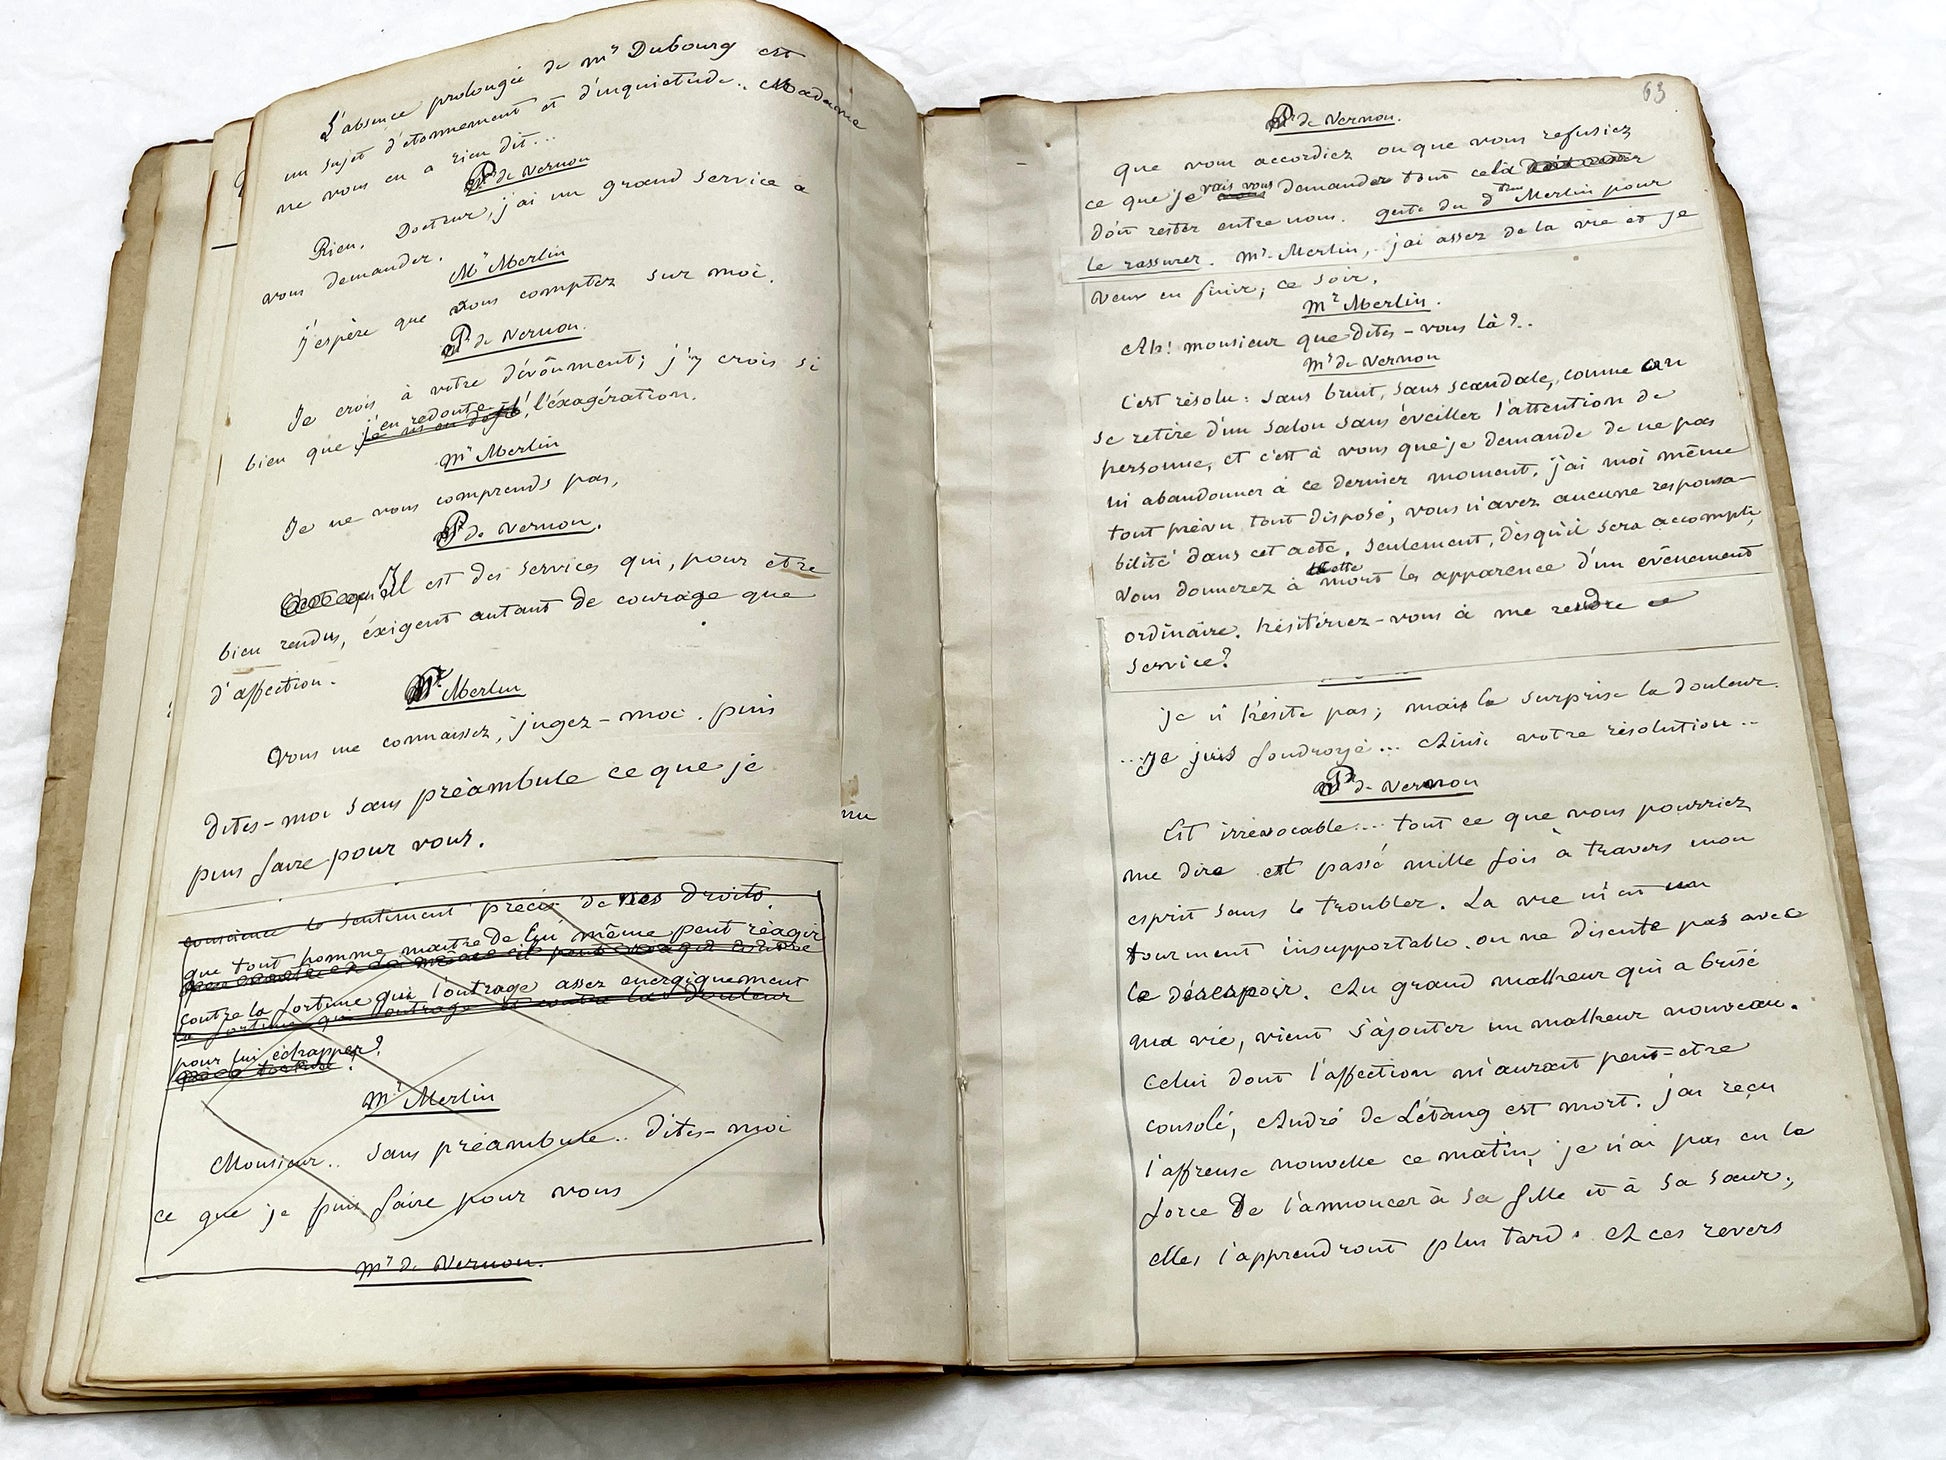 L'absence prolongée de mr Dubourg est
un sujet d'étonnement et d'inquietude.. Madame
ne vous en a rien dit...
Mr de Vernon
Rien. Docteur, j'ai un grand service a
vous demander.
Mr Merlin
J'espère que vous comptez sur moi.
Mr de Vernon.
Je crois à votre dévoûment; j'y crois si
bien que j'en redoute l'éxagération.
Mr Merlin
Je ne vous comprends pas,
Mr de Vernon.
Il est des services qui, pour etre
bien rendus, éxigent autant de courage que
d'affection.
Mr Merlin
Vous me connaissez, jugez-moi. puis
Dites-moi sans préambule ce que je
puis faire pour vous.
nu
conscience le sentiment précis de nos droits.
que tout homme maitre de lui même peut réagir
contre la fortune qui l'outrage assez energiquement
la fortune qui l'outrage et contre la douleur
pour lui échapper?
Mr Merlin
Monsieur.. sans préambule.. dites-moi
ce que je puis faire pour vous
Mr de Vernon.
63
Mr de Vernon.
Que vous accordiez ou que vous refusiez
ce que je vais vous demander tout cela
doit rester entre nous. geste du dteur Merlin pour
le rassurer. Mr Merlin, j'ai assez de la vie et je
veux en finir, ce soir.
Mr Merlin.
Ah! monsieur que dites-vous là?..
Mr de Vernon
C'est résolu: sans bruit, sans scandale, comme on
se retire d'un salon sans éveiller l'attention de
personne, et c'est à vous que je demande de ne pas
m'abandonner à ce dernier moment. j'ai moi même
tout prévu tout disposé, vous n'avez aucune responsa-
bilité dans cet acte. seulement, dès qu'il sera accompli,
vous donnerez à cette mort les apparence d'un evênement
ordinaire. hésiteriez-vous à me rendre ce
service?
je n'hésite pas; mais la surprise la douleur.
...je suis foudroyé... Ainsi votre résolution...
Mr de Vernon
Est irrévocable... tout ce que vous pourriez
me dire est passé mille fois à travers mon
esprit sans le troubler. La vie m'est un
tourment insupportable. on ne discute pas avec
le désespoir. Au grand malheur qui a brisé
ma vie, vient s'ajouter un malheur nouveau.
Celui dont l'affection m'aurait peut-etre
consolé, André de Létang est mort. j'ai reçu
l'affreuse nouvelle ce matin, je n'ai pas eu la
force de l'annoncer à sa fille et à sa sœur,
elles l'apprendront plus tard. A ces revers